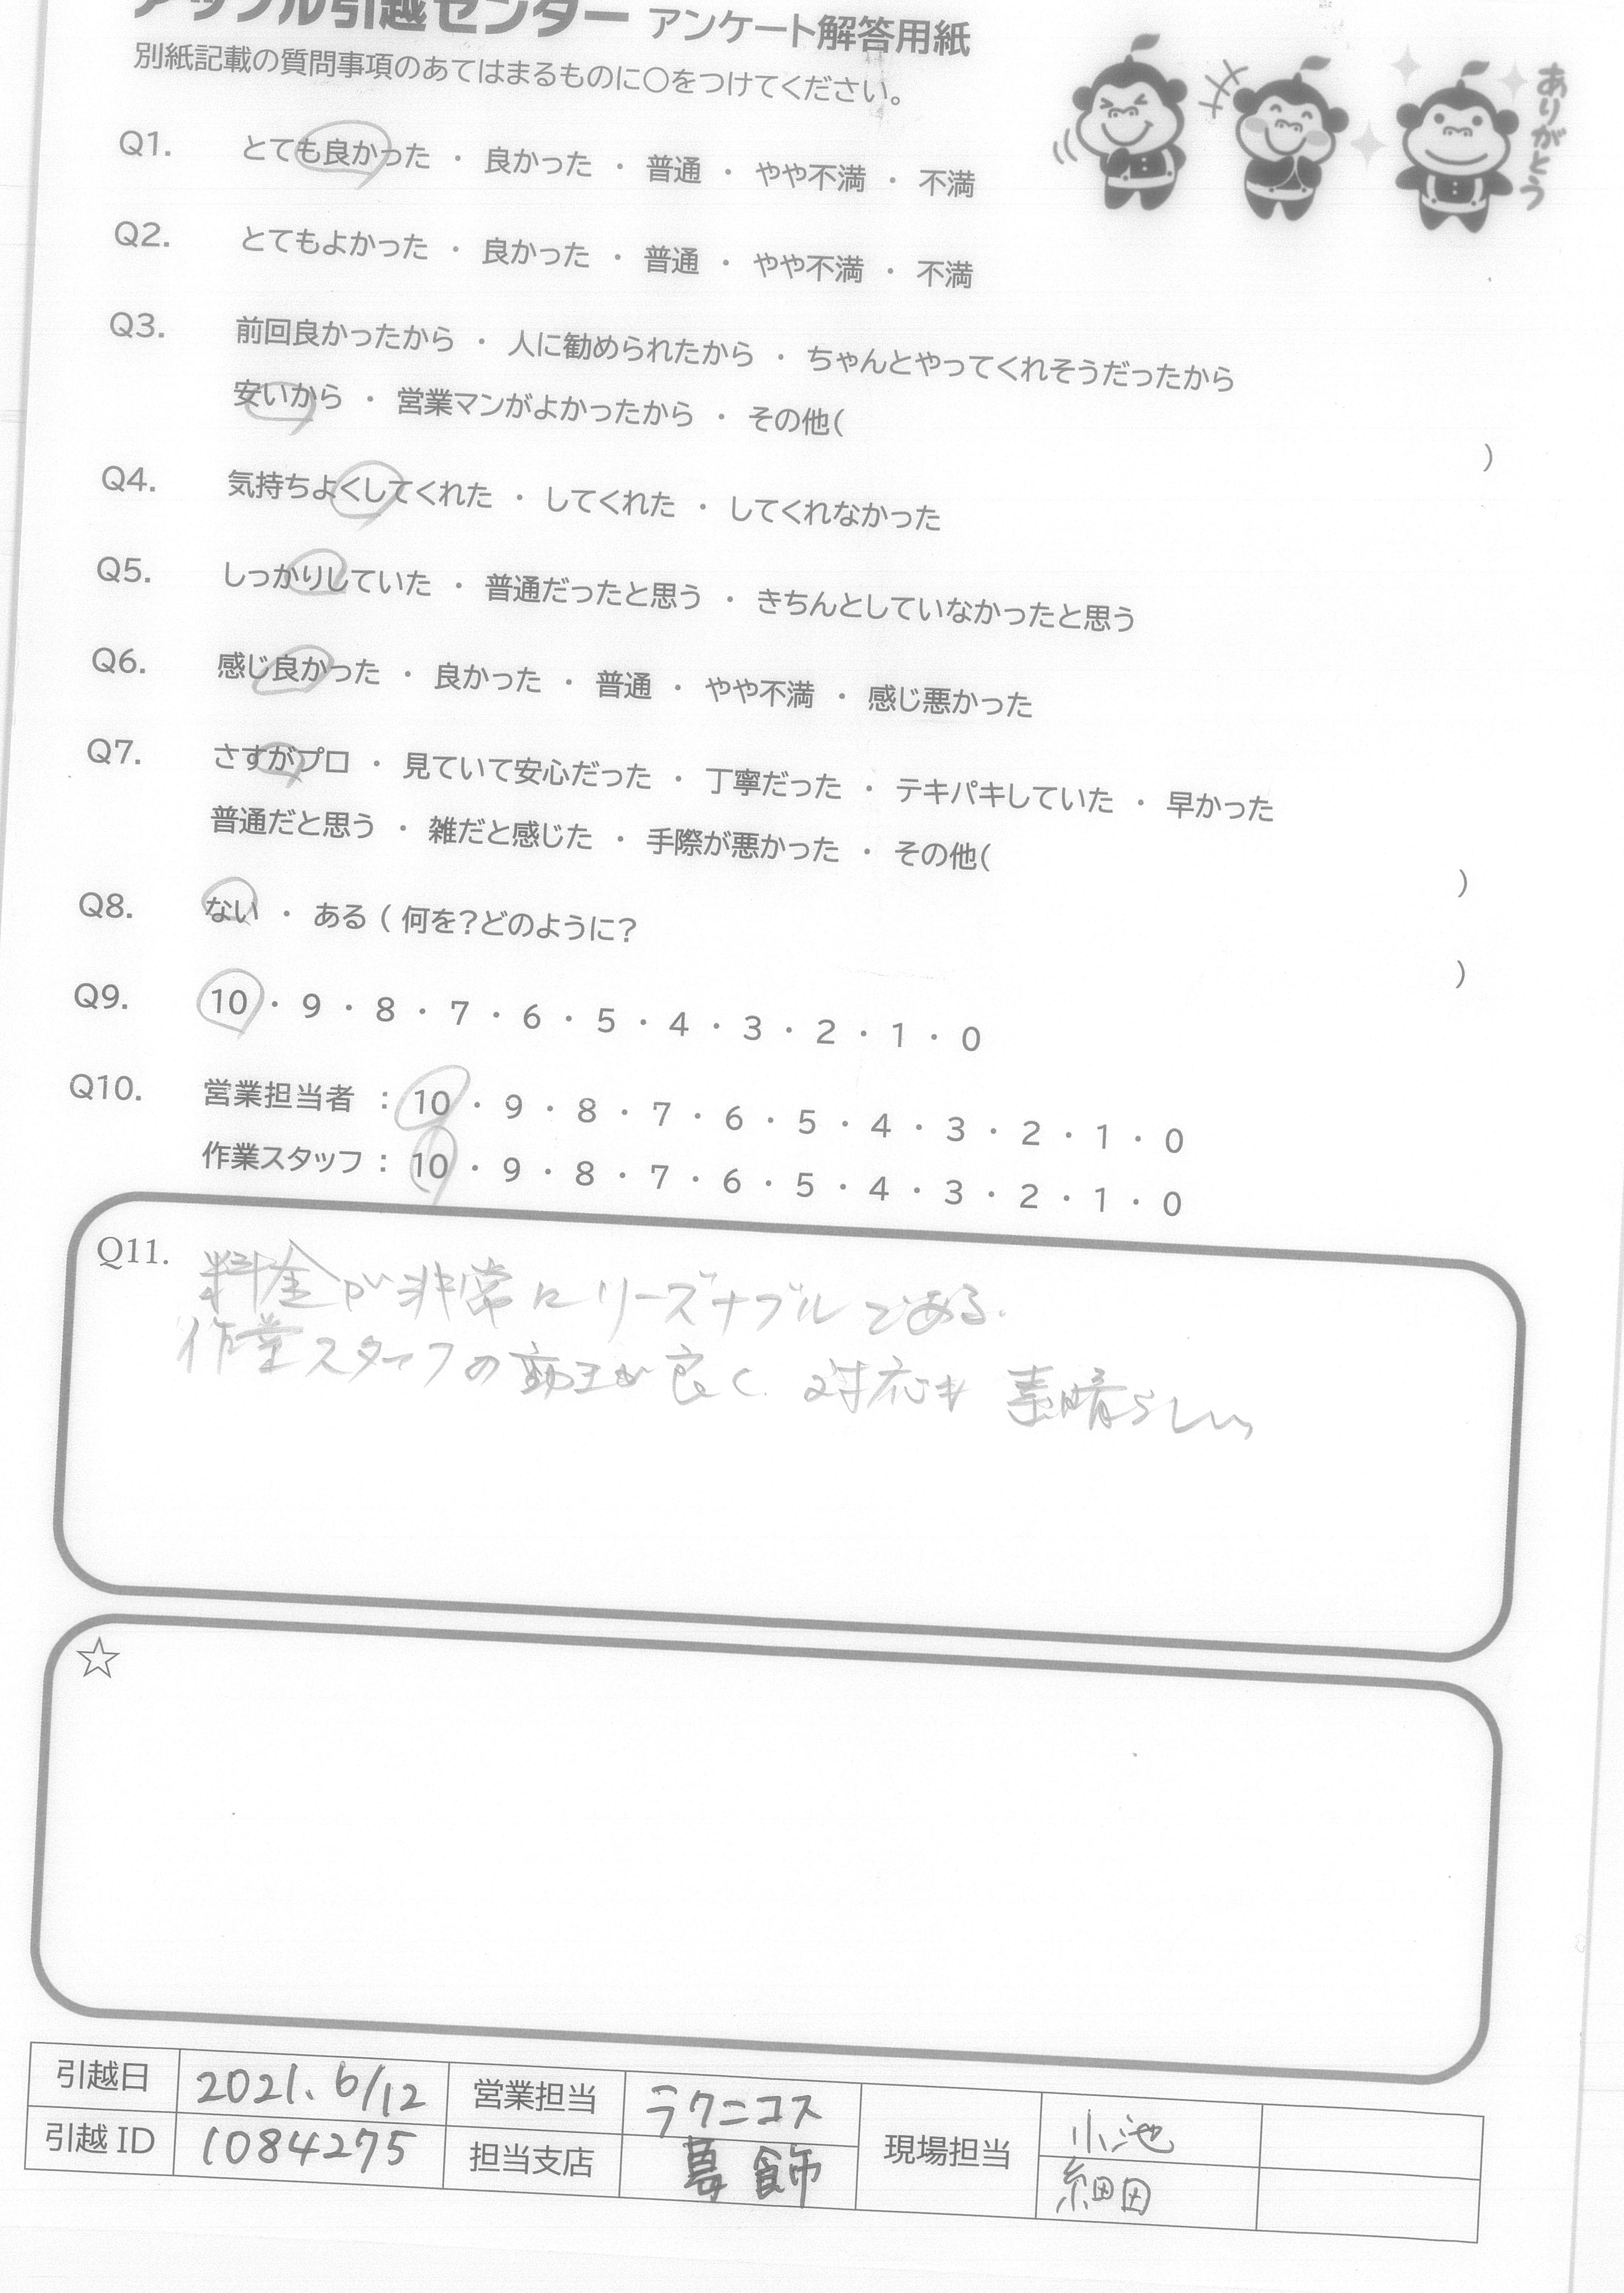 アップル引越センター アンケート解答用紙
別紙記載の質問事項のあてはまるものに〇をつけてください。
ありがとう
Q1. とても良かった ・ 良かった ・ 普通 ・ やや不満 ・ 不満
Q2. とてもよかった ・ 良かった ・ 普通 ・ やや不満 ・ 不満
Q3. 前回良かったから ・ 人に勧められたから ・ ちゃんとやってくれそうだったから
安いから ・ 営業マンがよかったから ・ その他( )
Q4. 気持ちよくしてくれた ・ してくれた ・ してくれなかった
Q5. しっかりしていた ・ 普通だったと思う ・ きちんとしていなかったと思う
Q6. 感じ良かった ・ 良かった ・ 普通 ・ やや不満 ・ 感じ悪かった
Q7. さすがプロ ・ 見ていて安心だった ・ 丁寧だった ・ テキパキしていた ・ 早かった
普通だと思う ・ 雑だと感じた ・ 手際が悪かった ・ その他( )
Q8. ない ・ ある ( 何を?どのように? )
Q9. 10 ・ 9 ・ 8 ・ 7 ・ 6 ・ 5 ・ 4 ・ 3 ・ 2 ・ 1 ・ 0
Q10. 営業担当者 : 10 ・ 9 ・ 8 ・ 7 ・ 6 ・ 5 ・ 4 ・ 3 ・ 2 ・ 1 ・ 0
作業スタッフ : 10 ・ 9 ・ 8 ・ 7 ・ 6 ・ 5 ・ 4 ・ 3 ・ 2 ・ 1 ・ 0
Q11. 料金が非常にリーズナブルである.
作業スタッフの が良く、対応も素晴らしい
☆
引越日 2021. 6/12 営業担当 ラクニコス 現場担当 小池
引越 ID 1084275 担当支店 葛飾 細田